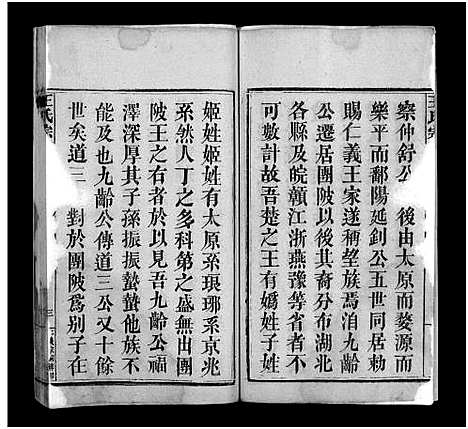 察仲舒公　後由太原而婺源而
樂平而鄱陽延釗公五世同居勅
賜仁義王家遂稱望族焉洎九齡
公遷居團陂以後其裔分布湖北
各縣及皖贛江浙燕豫等省者不
可數計故吾楚之王有嬀姓子姓
姬姓姬姓有太原系琅琊系京兆
系然人丁之多科第之盛無出團
陂王之右者於以見吾九齡公福
澤深厚其子孫振振蟄蟄他族不
能及也九齡公傳道三公又十餘
世矣道三　對於團陂為別子在
王氏宗
三